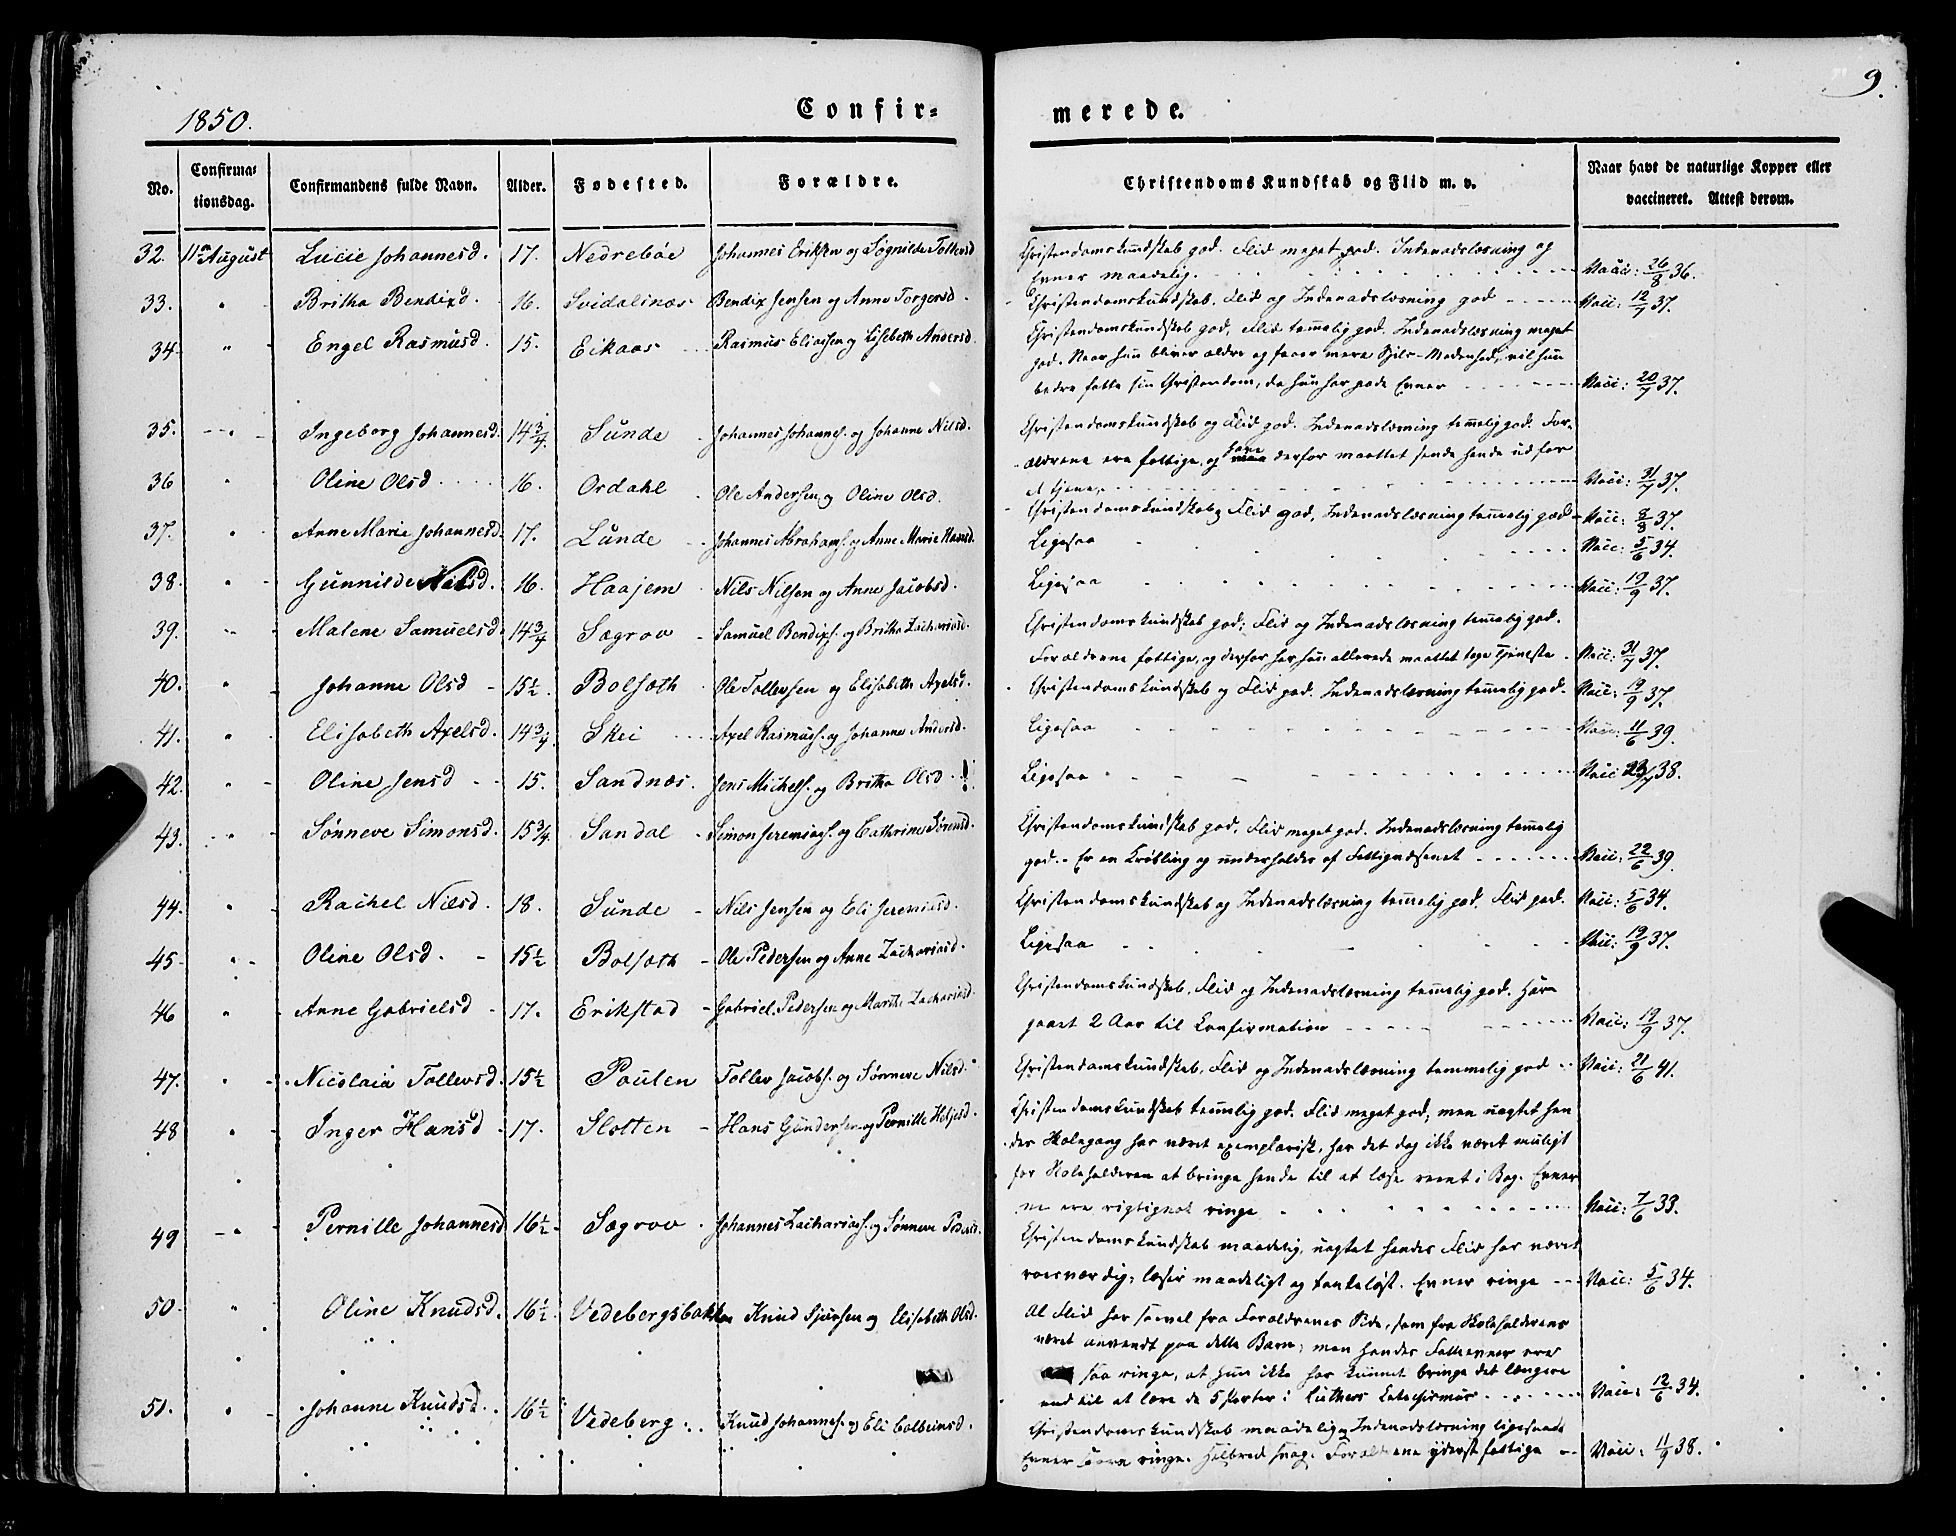 9.
1850.
Confir-
merede.
No.
Confirma-
tionsdag.
Confirmandens fulde Navn.
Alder.
Fødested.
Forældre.
Christendoms Kundskab og Flid m. v.
Naar havt de naturlige Kopper eller
vaccineret. Attest derom.
32. 11te August Lucie Johannesd. 17. Nedrebøe Johannes Eriksen og Sognilde Tollevsd
Christendomskundskab god. Flid meget god. Indenadslæsning og
Evner maadelig. Vacc: 26/8 36.
33. " Britha Bendixd. 16. Svidalinæs Bendix Jensen og Anne Torgersd. Christendomskundskab, Flid og Indenadslæsning god Vacc: 12/7 37.
34 " Engel Rasmusd. 15. Eikaas Rasmus Eliassen og Lisebeth Andersd.
Christendomskundskab god, Flid temmelig god. Indenadslæsning meget
god. Naar hun bliver ældre og faaer mere Sjels-Modenhed, vil hun
bedre fatte sin Christendom, da hun har gode Evner Vacc: 20/7 37.
35. " Ingeborg Johannesd. 14 3/4. Sunde Johannes Johannes. og Johanne Nilsd.
Christendomskundskab og Flid god. Indenadslæsning temmelig god. For-
ældrene ere fattige, og have derfor maattet sende hende ud for
at tjene. Vacc: 31/7 37.
36 " Oline Olsd. 16. Ordahl Ole Andersen og Oline Olsd. Christendomskundskab og Flid god, Indenadslæsning temmelig god Vacc: 8/8 37.
37. " Anne Marie Johannesd. 17. Lunde Johannes Abrahams. og Anne Marie Hansd. Ligesaa Vacc: 5/6 34.
38. " Gunnilde Nilsd. 16. Haajem Nils Nilsen og Anne Jacobsd. Ligesaa Vacc: 19/9 37.
39. " Malene Samuelsd. 14 3/4 Sægrov Samuel Bendixs. og Britha Zachariasd.
Christendomskundskab god; Flid og Indenadslæsning temmelig god.
Forældrene fattige, og derfor har hun allerede maattet tage Tjeneste Vacc: 31/7 37.
40. " Johanne Olsd 15 1/2. Bolsæth Ole Tollevsen og Elisabeth Axelsd. Christendomskundskab og Flid god. Indenadslæsning temmelig god. Vacc: 19/9 37.
41. " Elisabeth Axelsd. 14 3/4 Skei Axel Rasmuss. og Johanne Andersd. Ligesaa Vacc: 11/6 39.
42. " Oline Jensd 15. Sandnæs. Jens Michels. og Britha Olsd. Ligesaa Vacc 23/7 38.
43. " Sønneve Simonsd. 15 3/4. Sandal Simon Jeremias. og Cathrine Sørensd.
Christendomskundskab god, Flid meget god. Indenadslæsning temmelig
god. Er en Krøbling og underholdes af Fattigvæsenet Vacc: 22/6 39.
44. " Rachel Nilsd. 18. Sunde Nils Jensen og Eli Jeremiasd. Christendomskundskab og Indenadslæsning temmelig god. Flid god. Vacc: 5/6 34.
45 " Oline Olsd. 15 1/2 Bolsæth Ole Pedersen og Anne Zachariasd. Ligesaa Vacc: 19/9 37.
46 " Anne Gabrielsd 17. Erikstad Gabriel Pedersen og Marthe Zachariasd.
Christendomskundskab, Flid og Indenadslæsning temmelig god. Har
gaaet 2 Aar til Confirmation Vacc: 19/9 37.
47. " Nicolaia Tollevsd. 15 1/2 Paulen Tollev Jacobs. og Sønneve Nilsd. Christendomskundskab, Flid og Indenadslæsning temmelig god Vacc: 21/6 41.
48 " Inger Hansd 17. Slotten Hans Gundersen og Pernille Heljesd.
Christendomskundskab temmelig god. Flid meget god; men uagtet hen
des Skolegang har været exemplarisk, har det dog ikke været muligt
for Skoleholderen at bringe hende til at læse reent i Bog. Evner
ne ere rigtignok ringe Vacc: 7/6 33.
49 " Pernille Johannesd 16 1/2 Sægrov Johannes Zacharias. og Sønneve Pedersd.
Christendomskundskab maadelig, uagtet hendes Flid har været
roesværdig; læser maadeligt og tankeløst. Evner ringe Vacc: 5/6 34.
50. " Oline Knudsd. 16 1/2. Vedebergsbakken Knud Sjursen og Elisabeth Olsd.
Al Flid har saavel fra Forældrenes Side, som fra Skoleholderens
været anvendt paa dette Barn; men hendes Fatteevner ere
saa ringe, at hun ikke har kunnet bringe det længere
end til at lære de 5 Parter i Luthers Catechismus Vacc: 12/6 34.
51. " Johanne Knudsd. 16 1/2 Vedeberg Knud Johannes. og Eli Colbeinsd.
Christendomskundskab maadelig og Indenadslæsning ligesaa
Evner ringe. Helbred svag. Forældrene yderst fattige Vacc: 11/9 38.